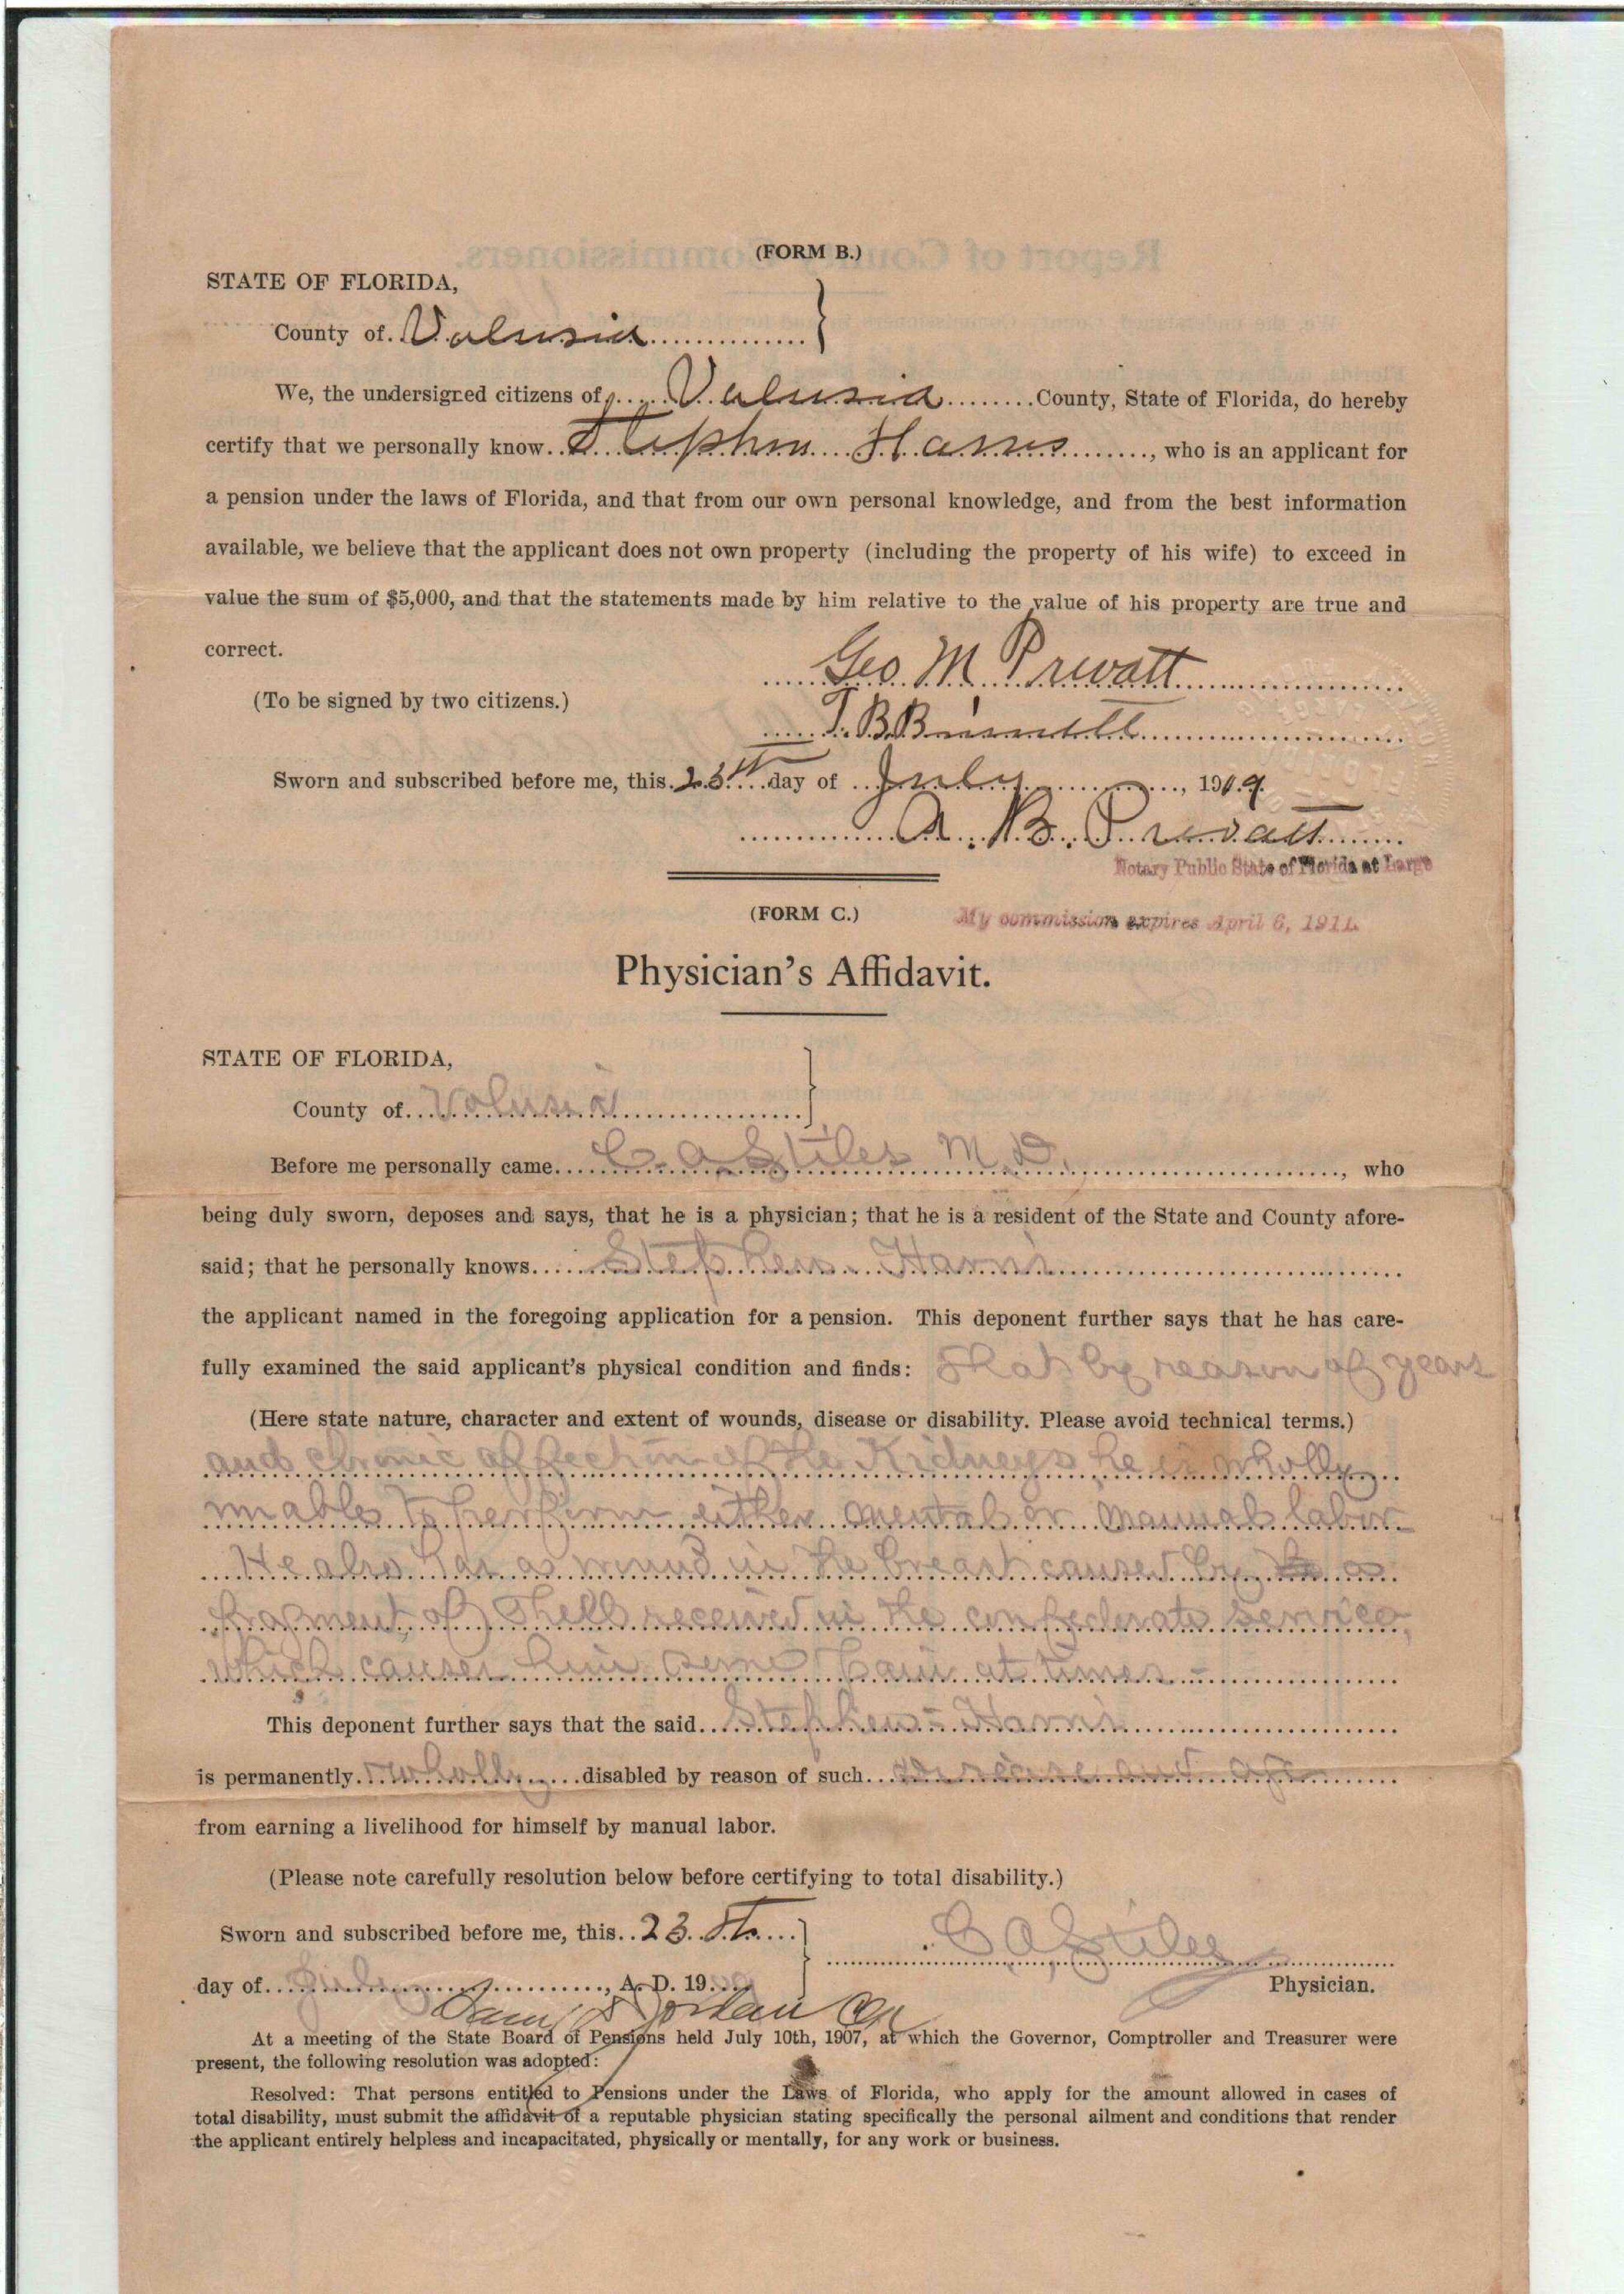 (FORM B.)
STATE OF FLORIDA,
County of Volusia
We, the undersigned citizens of Volusia County, State of Florida, do hereby
certify that we personally know Stephen Harris, who is an applicant for
a pension under the laws of Florida, and that from our own personal knowledge, and from the best information
available, we believe that the applicant does not own property (including the property of his wife) to exceed in
value the sum of $5,000, and that the statements made by him relative to the value of his property are true and
correct.
Geo. M Prevatt
(To be signed by two citizens.)
T. B.
Sworn and subscribed before me, this day of July, 1909.
A. B. Prevatt
Notary Public State of Florida at Large
(FORM C.)
My commission expires April 6, 1911.
Physician's Affidavit.
STATE OF FLORIDA,
County of Volusia
Before me personally came C. A. Stiles M.D., who
being duly sworn, deposes and says, that he is a physician; that he is a resident of the State and County afore-
said; that he personally knows Stephen Harris
the applicant named in the foregoing application for a pension. This deponent further says that he has care-
fully examined the said applicant's physical condition and finds: That by reason of years
(Here state nature, character and extent of wounds, disease or disability. Please avoid technical terms.)
and chronic affection of the Kidneys he is wholly
unable to perform either mental or manual labor.
He also has a wound in the breast caused by a
fragment of Shell received in the confederate service,
which causes him some Pain at times -
This deponent further says that the said Stephen Harris
is permanently wholly disabled by reason of such disease and age
from earning a livelihood for himself by manual labor.
(Please note carefully resolution below before certifying to total disability.)
Sworn and subscribed before me, this 23
C A Stiles
day of July, A. D. 1909
Physician.
Sam D Jordan
At a meeting of the State Board of Pensions held July 10th, 1907, at which the Governor, Comptroller and Treasurer were
present, the following resolution was adopted:
Resolved: That persons entitled to Pensions under the Laws of Florida, who apply for the amount allowed in cases of
total disability, must submit the affidavit of a reputable physician stating specifically the personal ailment and conditions that render
the applicant entirely helpless and incapacitated, physically or mentally, for any work or business.